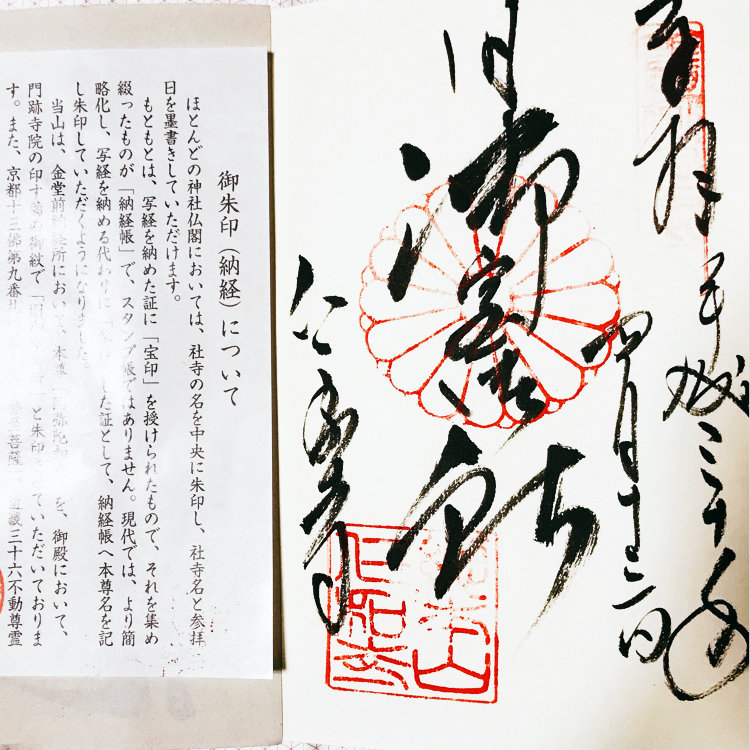 御朱印(納経)について
ほとんどの神社仏閣においては、社寺の名を中央に朱印し、社寺名と参拝
日を墨書きしていただけます。
もともとは、写経を納めた証に「宝印」を授けられたもので、それを集め
綴ったものが「納経帳」で、スタンプ帳ではありません。現代では、より簡
略化し、写経を納める代わりに した証として、納経帳へ本尊名を記
し朱印していただくようになりました
当山は、金堂前 所におい 、本尊 弥陀 を、御殿において、
門跡寺院の印す菊の御紋で「 」と朱印 ていただいておりま
す。また、京都十三佛第九番札 菩薩 近畿三十六不動尊霊
奉拝 平成三十年
四月十二日
旧御室御所
仁和寺
仁和寺